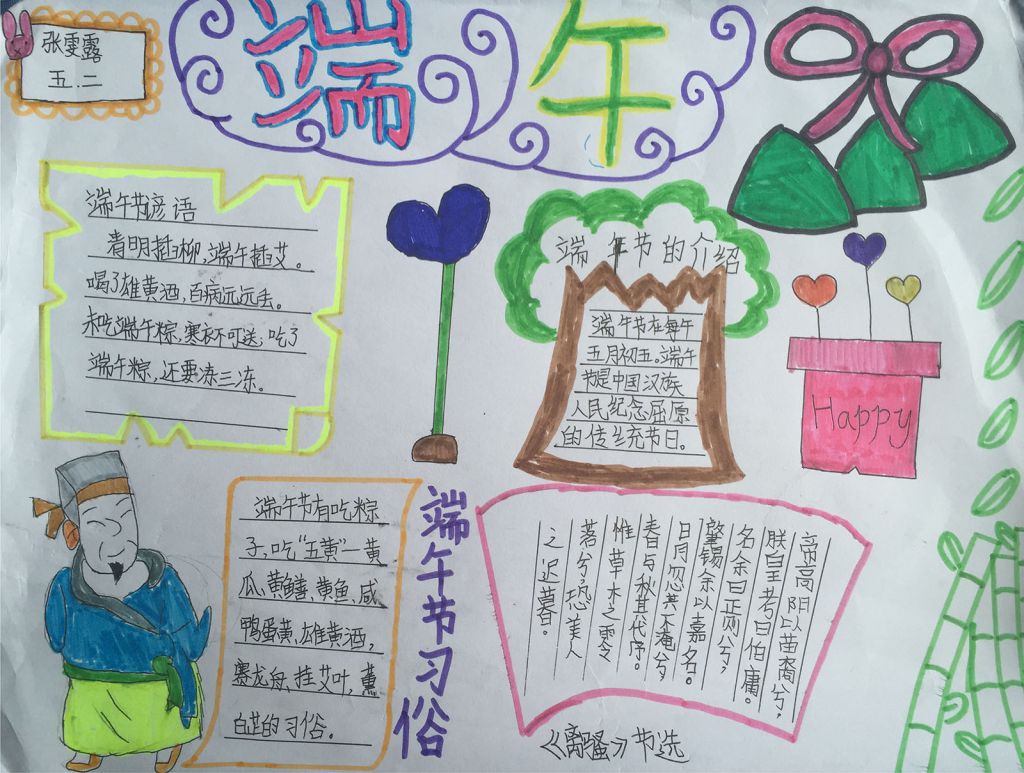 张雯露
五.二
端午
端午节谚语
青明插柳,端午插艾。
喝了雄黄酒,百病远远丢。
未吃端午粽,寒衣不可送;吃了
端午粽,还要冻三冻。
端午节的介绍
端午节在每年
五月初五。端午
节是中国汉族
人民纪念屈原
的传统节日。
Happy
端午节有吃粽
子,吃“五黄”一黄
瓜、黄鳝、黄鱼、咸
鸭蛋黄、雄黄酒,
赛龙舟、挂艾叶,薰
白芷的习俗。
端午节习俗
帝高阳以苗裔兮,
朕皇考曰伯庸。
名余曰正两兮,
肇锡余以嘉名。
日月忽其不淹兮,
春与秋其代序。
惟草木之零
落兮,恐美人
之迟暮。
《离骚》节选